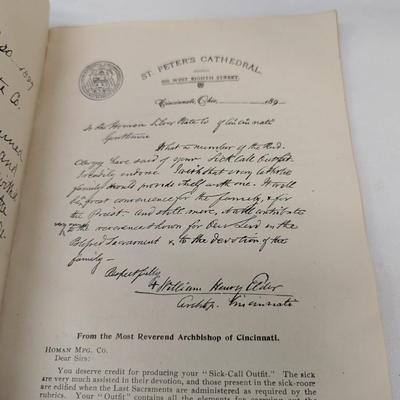 ST. PETER'S CATHEDRAL,
WEST EIGHTH STREET.
Cincinnati, Ohio, 189
To the Homan Silver Plate Co of Cincinnati
Gentlemen
What a number of the Rev.
Clergy have said of your Sick Call Outfit
I readily endorse. I wish that every Catholic
family would provide itself with one. It will
be a great convenience for the family, & for
the Priest - and still more, it will contribute
very much to the reverence shown for Our Lord in the
Blessed Sacrament & to the devotion of the
family -
Respectfully
+ William Henry Elder
Archbp. Cincinnati
From the Most Reverend Archbishop of Cincinnati.
HOMAN MFG. CO.
Dear Sirs:
You deserve credit for producing your "Sick-Call Outfit." The sick
are very much assisted in their devotion, and those present in the sick-room
are edified when the Last Sacraments are administered as required by the
rubrics. Your "Outfit" contains all the elements for carrying out the